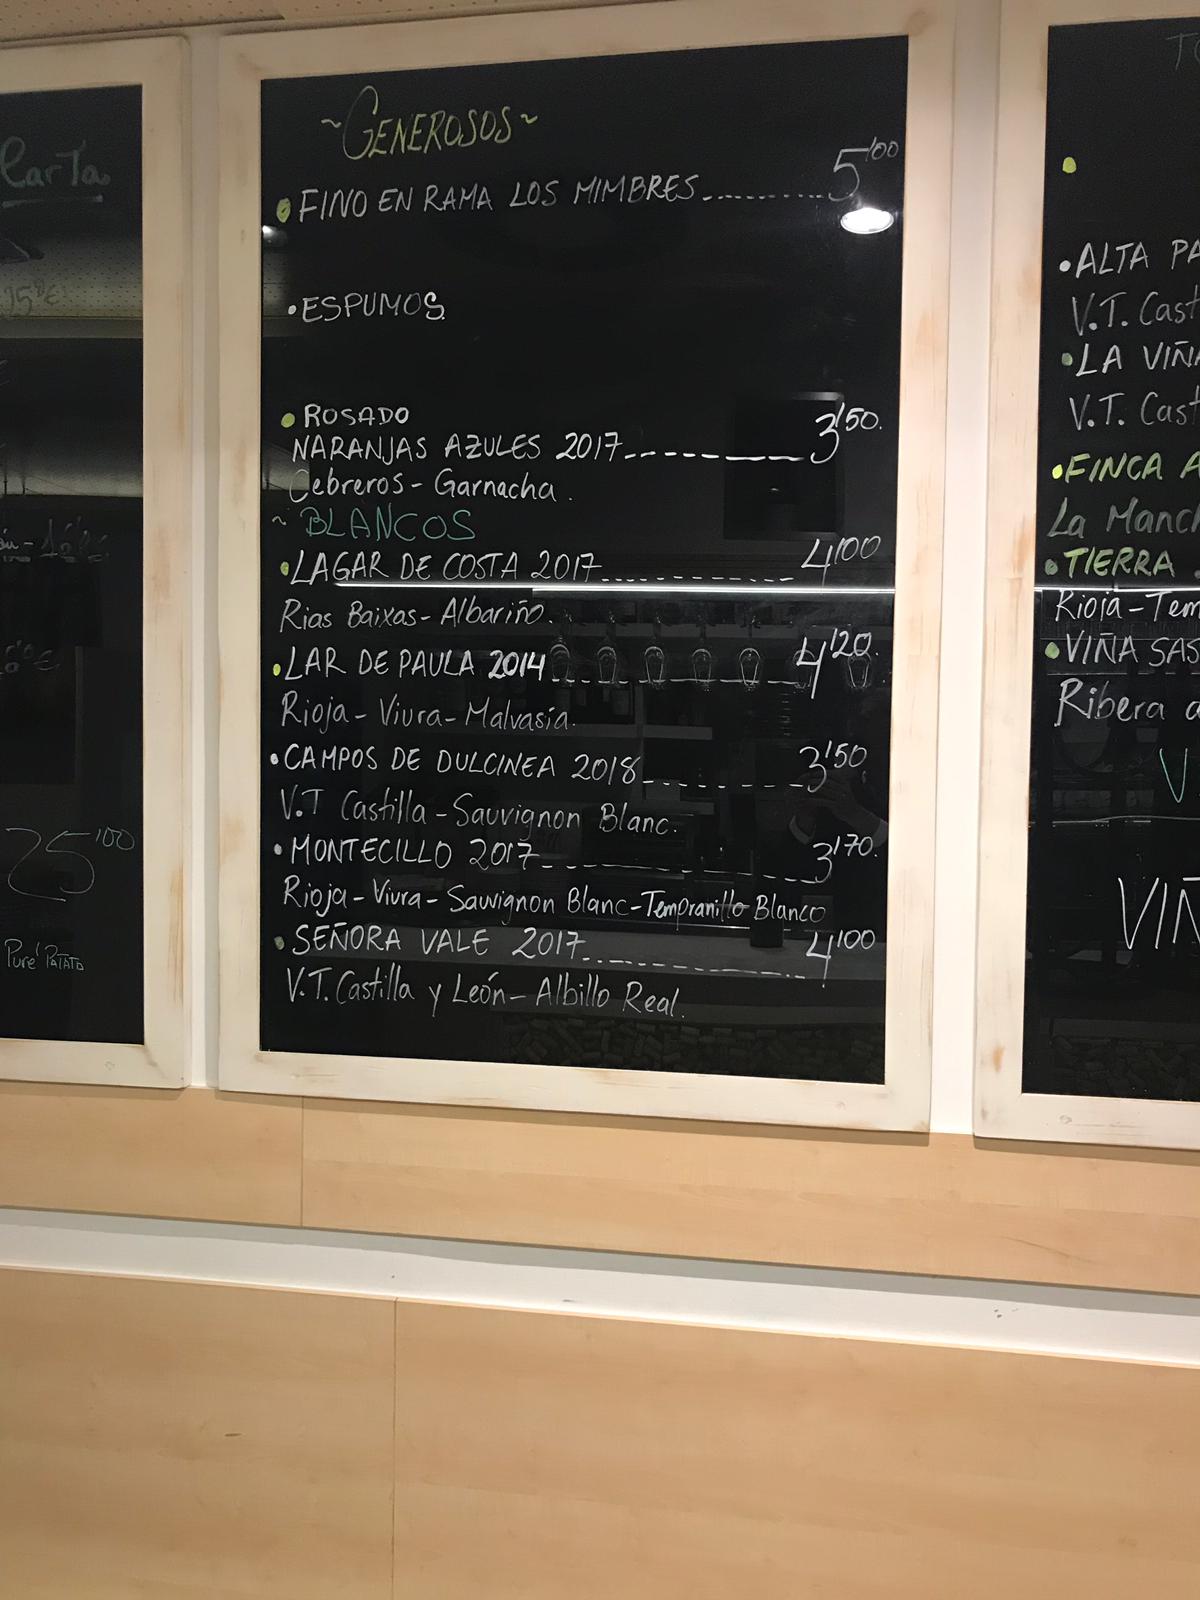 Carta
25'00
Puré PATATA
~GENEROSOS~
• FINO EN RAMA LOS MIMBRES 5'00
• ESPUMOS
• ROSADO
NARANJAS AZULES 2017 3'50.
Cebreros - Garnacha.
~ BLANCOS
• LAGAR DE COSTA 2017 4'00
Rias Baixas - Albariño.
• LAR DE PAULA 2014 4'20.
Rioja - Viura - Malvasía.
• CAMPOS DE DULCINEA 2018 3'50
V.T Castilla - Sauvignon Blanc.
• MONTECILLO 2017 3'70.
Rioja - Viura - Sauvignon Blanc - Tempranillo Blanco
• SEÑORA VALE 2017 4'00
V.T. Castilla y León - Albillo Real.
• ALTA PA
V.T. Cast
• LA VIÑA
V.T. Cast
• FINCA A
La Manch
• TIERRA
Rioja - Tem
• VIÑA SAS
Ribera d
V
VIÑ